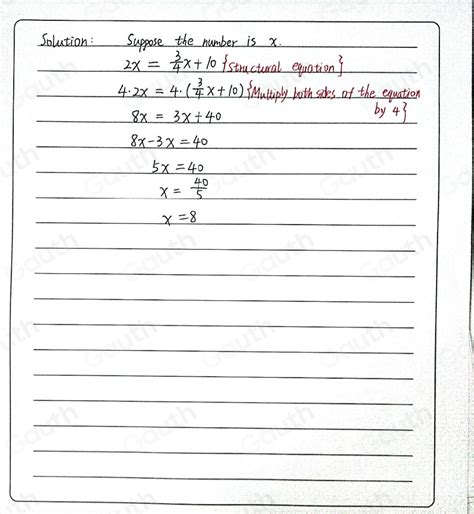 Solution: Suppose the number is x.
2x = 3/4 x + 10 {Structural equation}
4·2x = 4·(3/4 x + 10) {Multiply both sides of the equation by 4}
8x = 3x + 40
8x - 3x = 40
5x = 40
x = 40/5
x = 8
Gauth